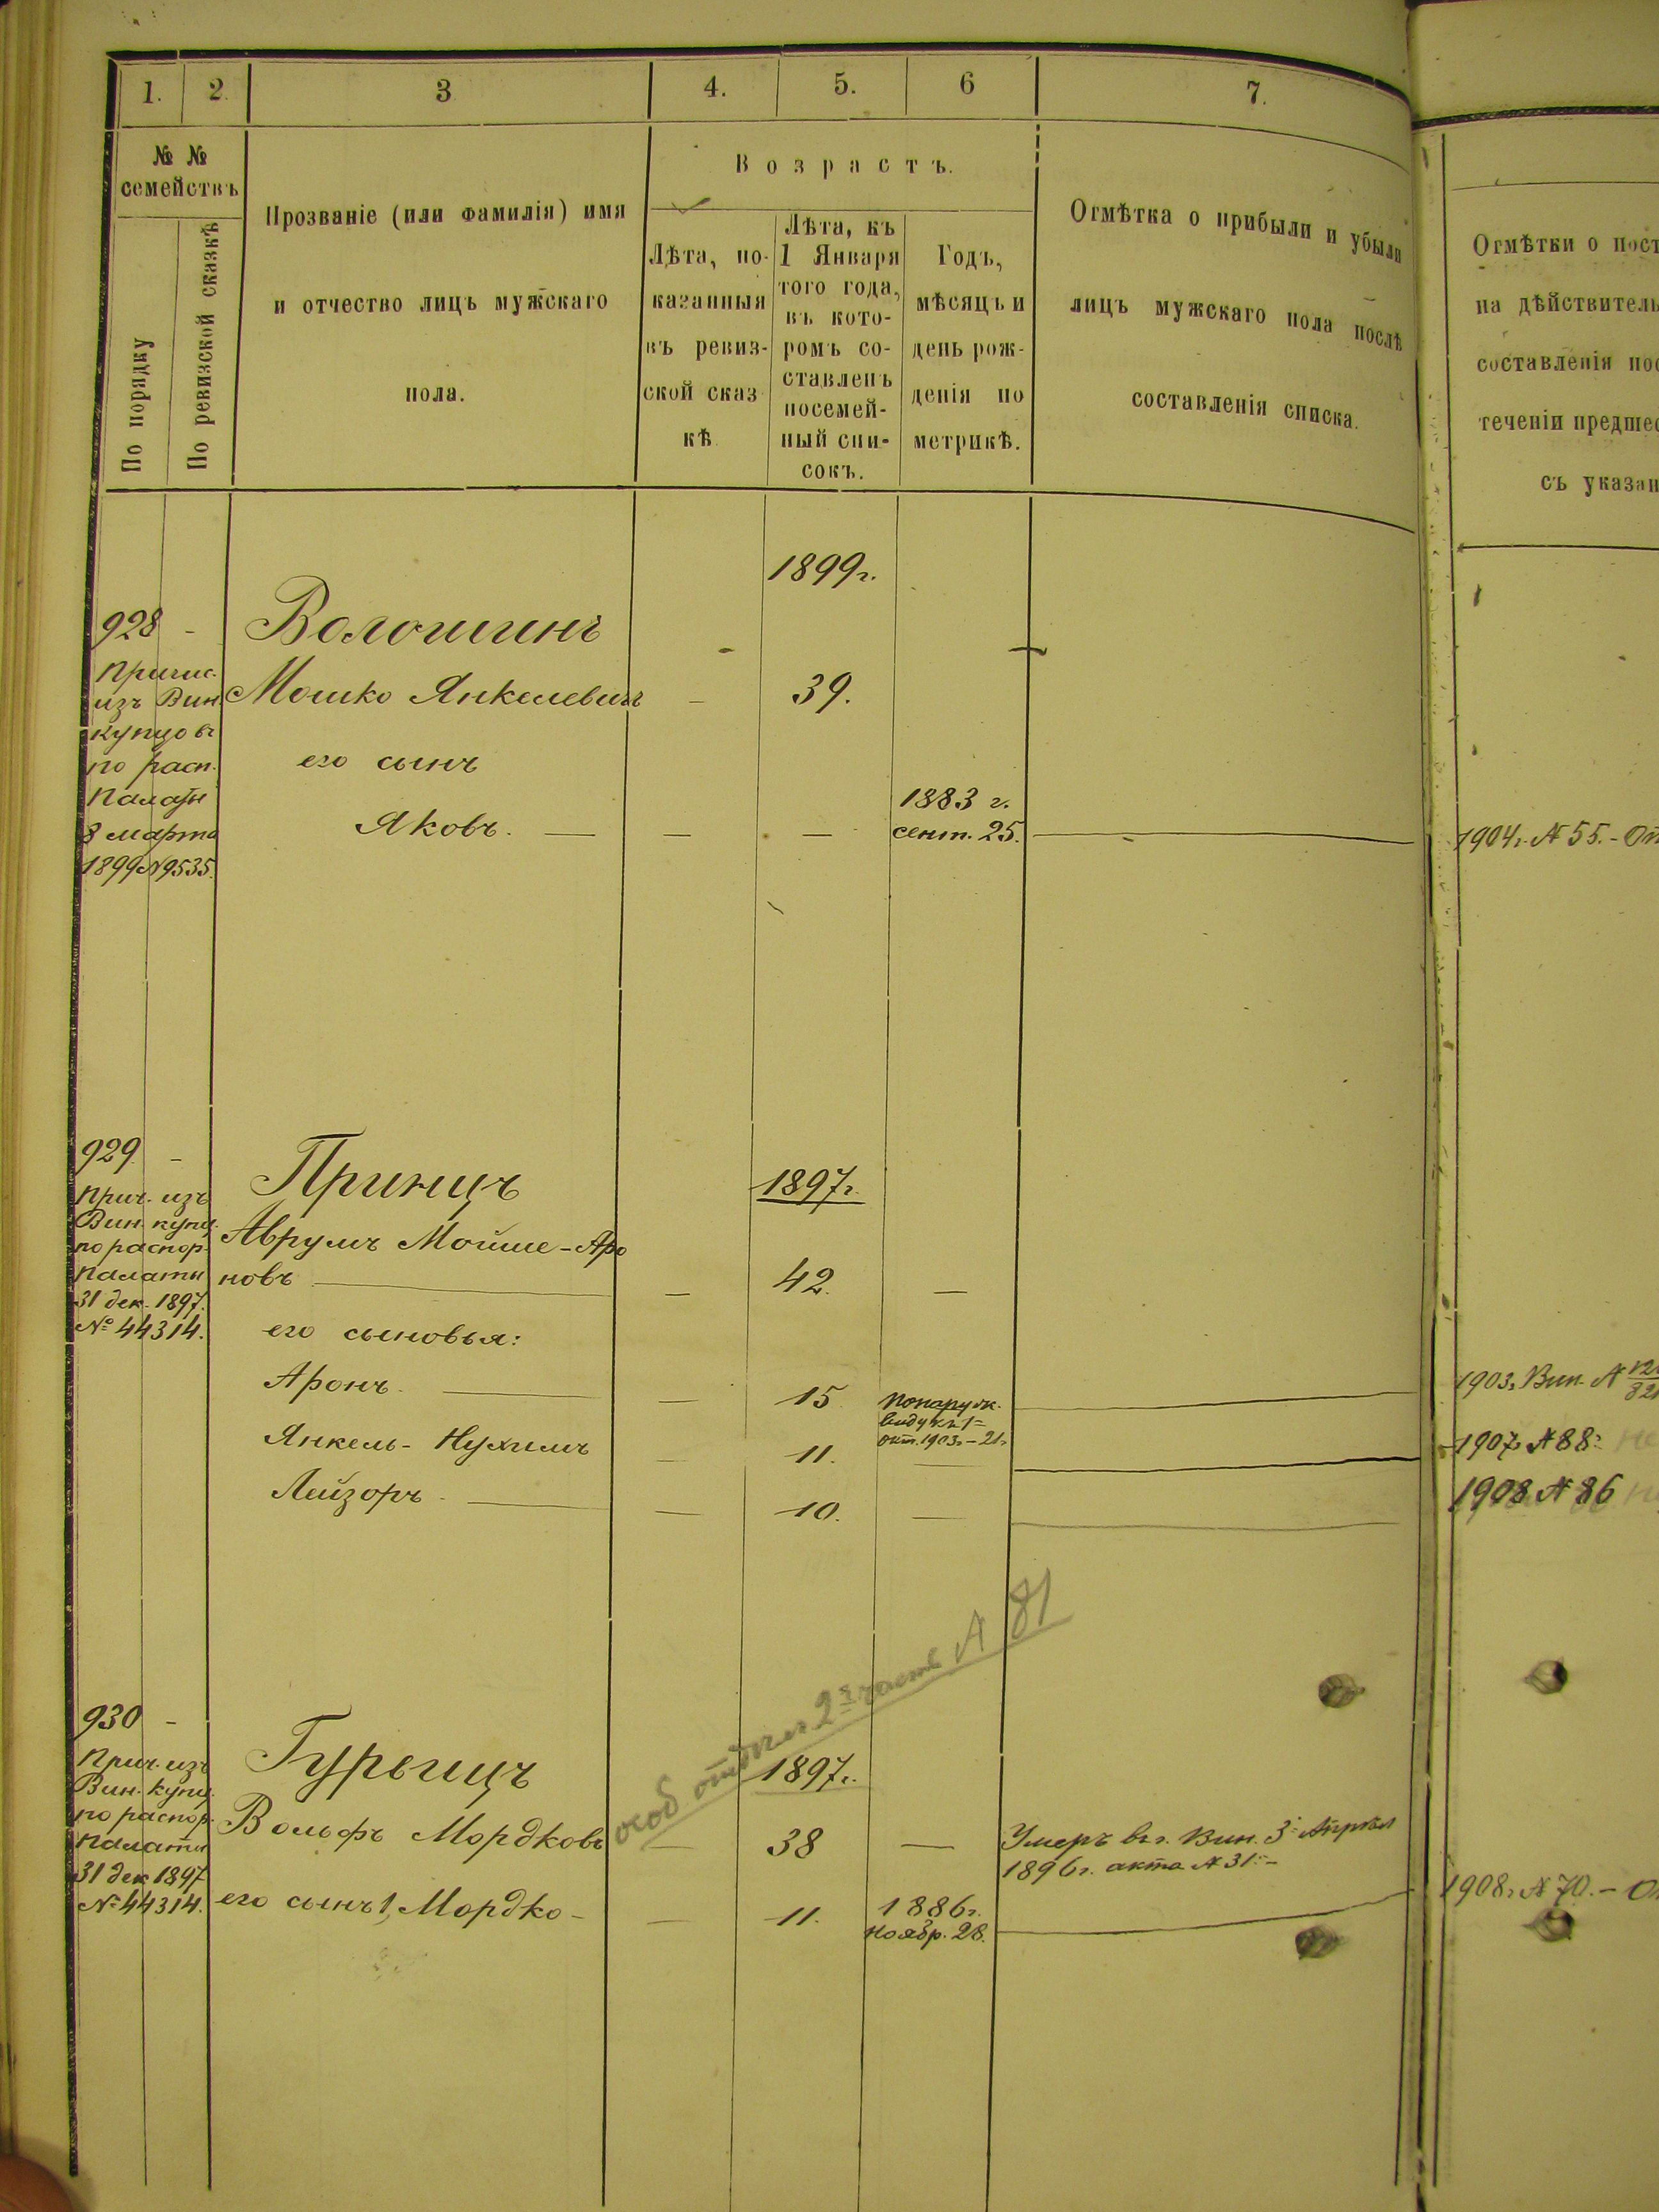 1. 2. 3 4. 5. 6 7.
№ №
семействъ
По порядку
По ревизской сказкѣ
Прозваніе (или фамилія) имя
и отчество лицъ мужскаго
пола.
Возрастъ.
Лѣта, по-
казанныя
въ ревиз-
ской сказ
кѣ
Лѣта, къ
1 Января
того года,
въ кото-
ромъ со-
ставленъ
посемей-
ный спи-
сокъ.
Годъ,
мѣсяцъ и
день рож-
денія по
метрикѣ.
Отмѣтка о прибыли и убыли
лицъ мужскаго пола послѣ
составленія списка.
Отмѣтки о пост
на дѣйствитель
составленія пос
теченіи предшес
съ указан
1899г.
928 - Волошинъ
Причис.
изъ Вин.
купцовъ
по расп.
Палаты
8 марта
1899 №9535.
Мошко Янкелевичъ — 39.
его сынъ
Яковъ. — — —
1883 г.
сент. 25.
1904г. № 55. - От
929 - Принцъ 1897г.
Прич. изъ
Вин. купц.
по распор.
Палаты
31 дек. 1897.
№ 44314.
Аврумъ Мойше-Аро
новъ — — 42. —
его сыновья:
Аронъ. — — 15
по наруж.
виду къ 1=
окт. 1903г. - 21г.
1903г. Вин. №
Янкель-Нухимъ — 11. —
1907г. № 88:
Лейзоръ — — 10. —
1908 № 86
особ. отдѣлъ 2я часть № 81
930 - Гурвицъ 1897г.
Прич. изъ
Вин. купц.
по распор.
Палаты
31 дек 1897
№ 44314.
Вольфъ Мордковъ — 38 —
Умеръ в г. Вин. 3 Апрѣля
1896г. акта № 31. -
его сынъ 1, Мордко - — 11.
1886г.
ноябр. 28.
1908г. № 70. - От